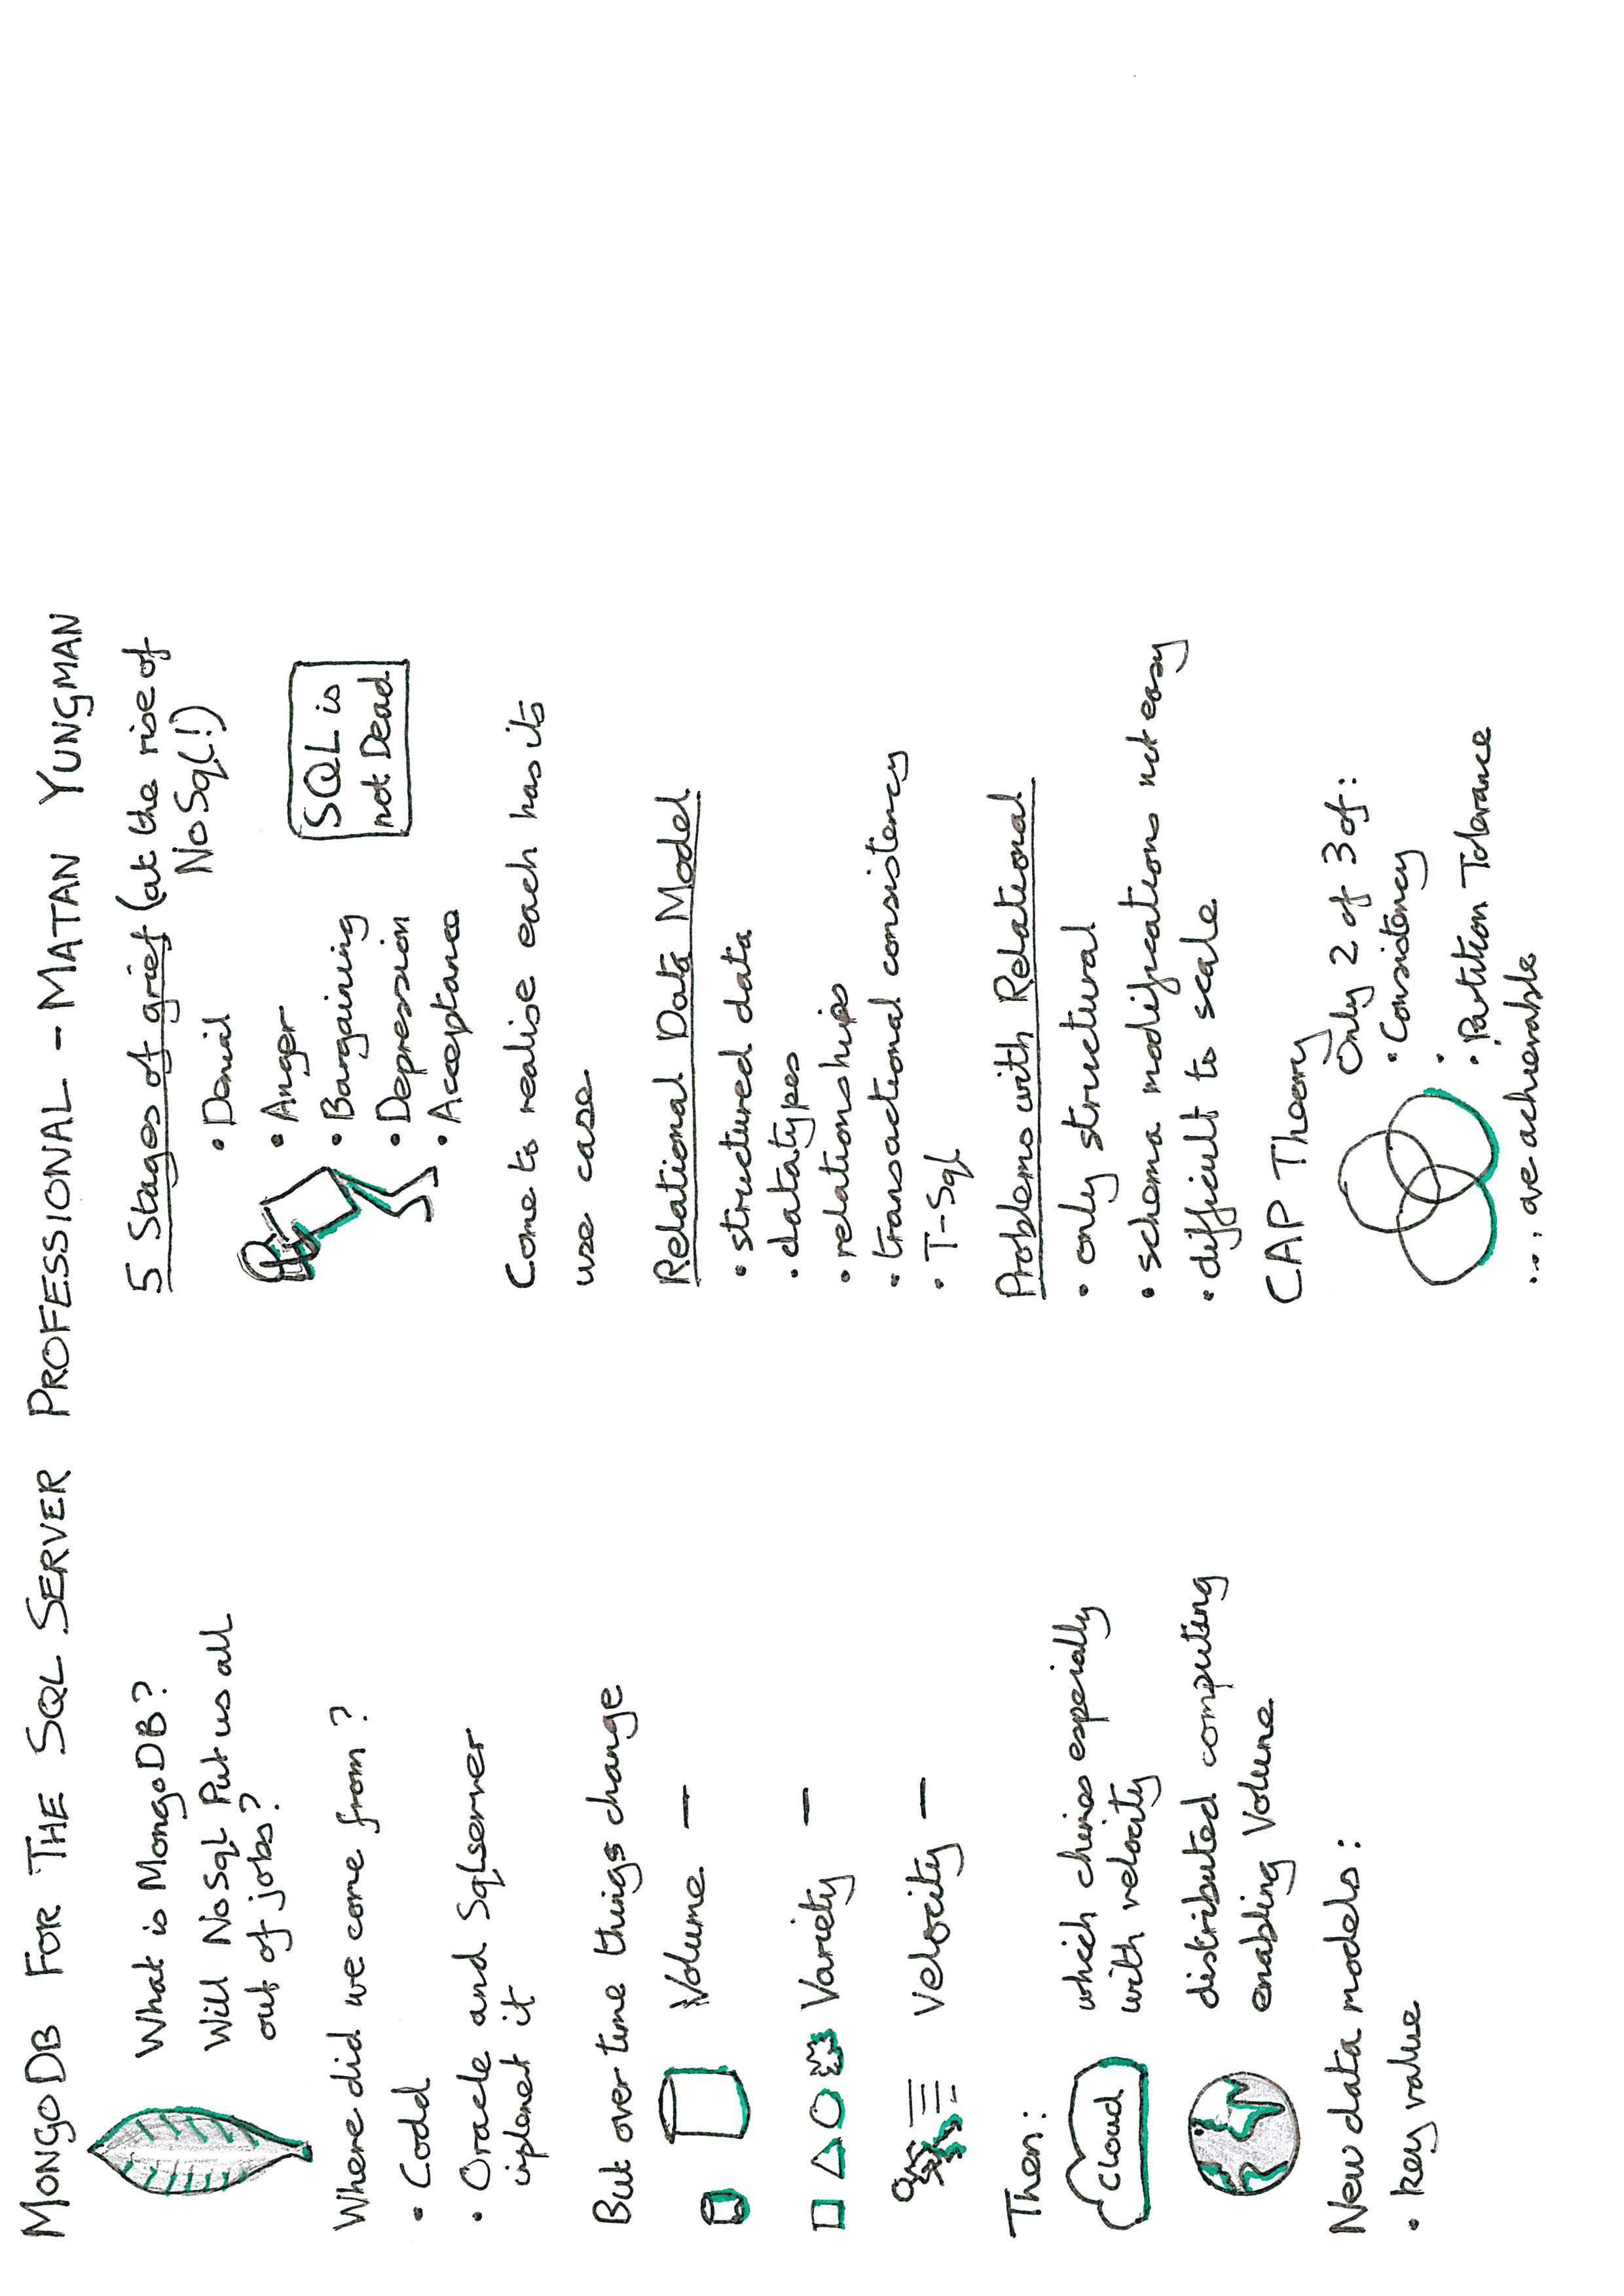 MONGODB FOR THE SQL SERVER PROFESSIONAL - MATAN YUNGMAN
What is MongoDB?
Will NoSql Put us all
out of jobs?
Where did we come from?
• Codd
• Oracle and Sqlserver
implenet it
But over time things change
Volume –
Variety –
Velocity –
Then:
Cloud
which chimes espcially
with velocity
distributed computing
enabling Volume
New data models:
• key value
5 Stages of grief (at the rise of
NoSql!)
• Denial
• Anger
• Bargaining
• Depression
• Acceptance
SQL is
not Dead
Come to realise each has its
use case
Relational Data Model
• structured data
• datatypes
• relationships
• transactional consistency
• T-Sql
Problems with Relational
• only structural
• schema modifications not easy
• difficult to scale
CAP Theory
Only 2 of 3 of:
• Consistency
•
• Partition Tolerance
... are achievable